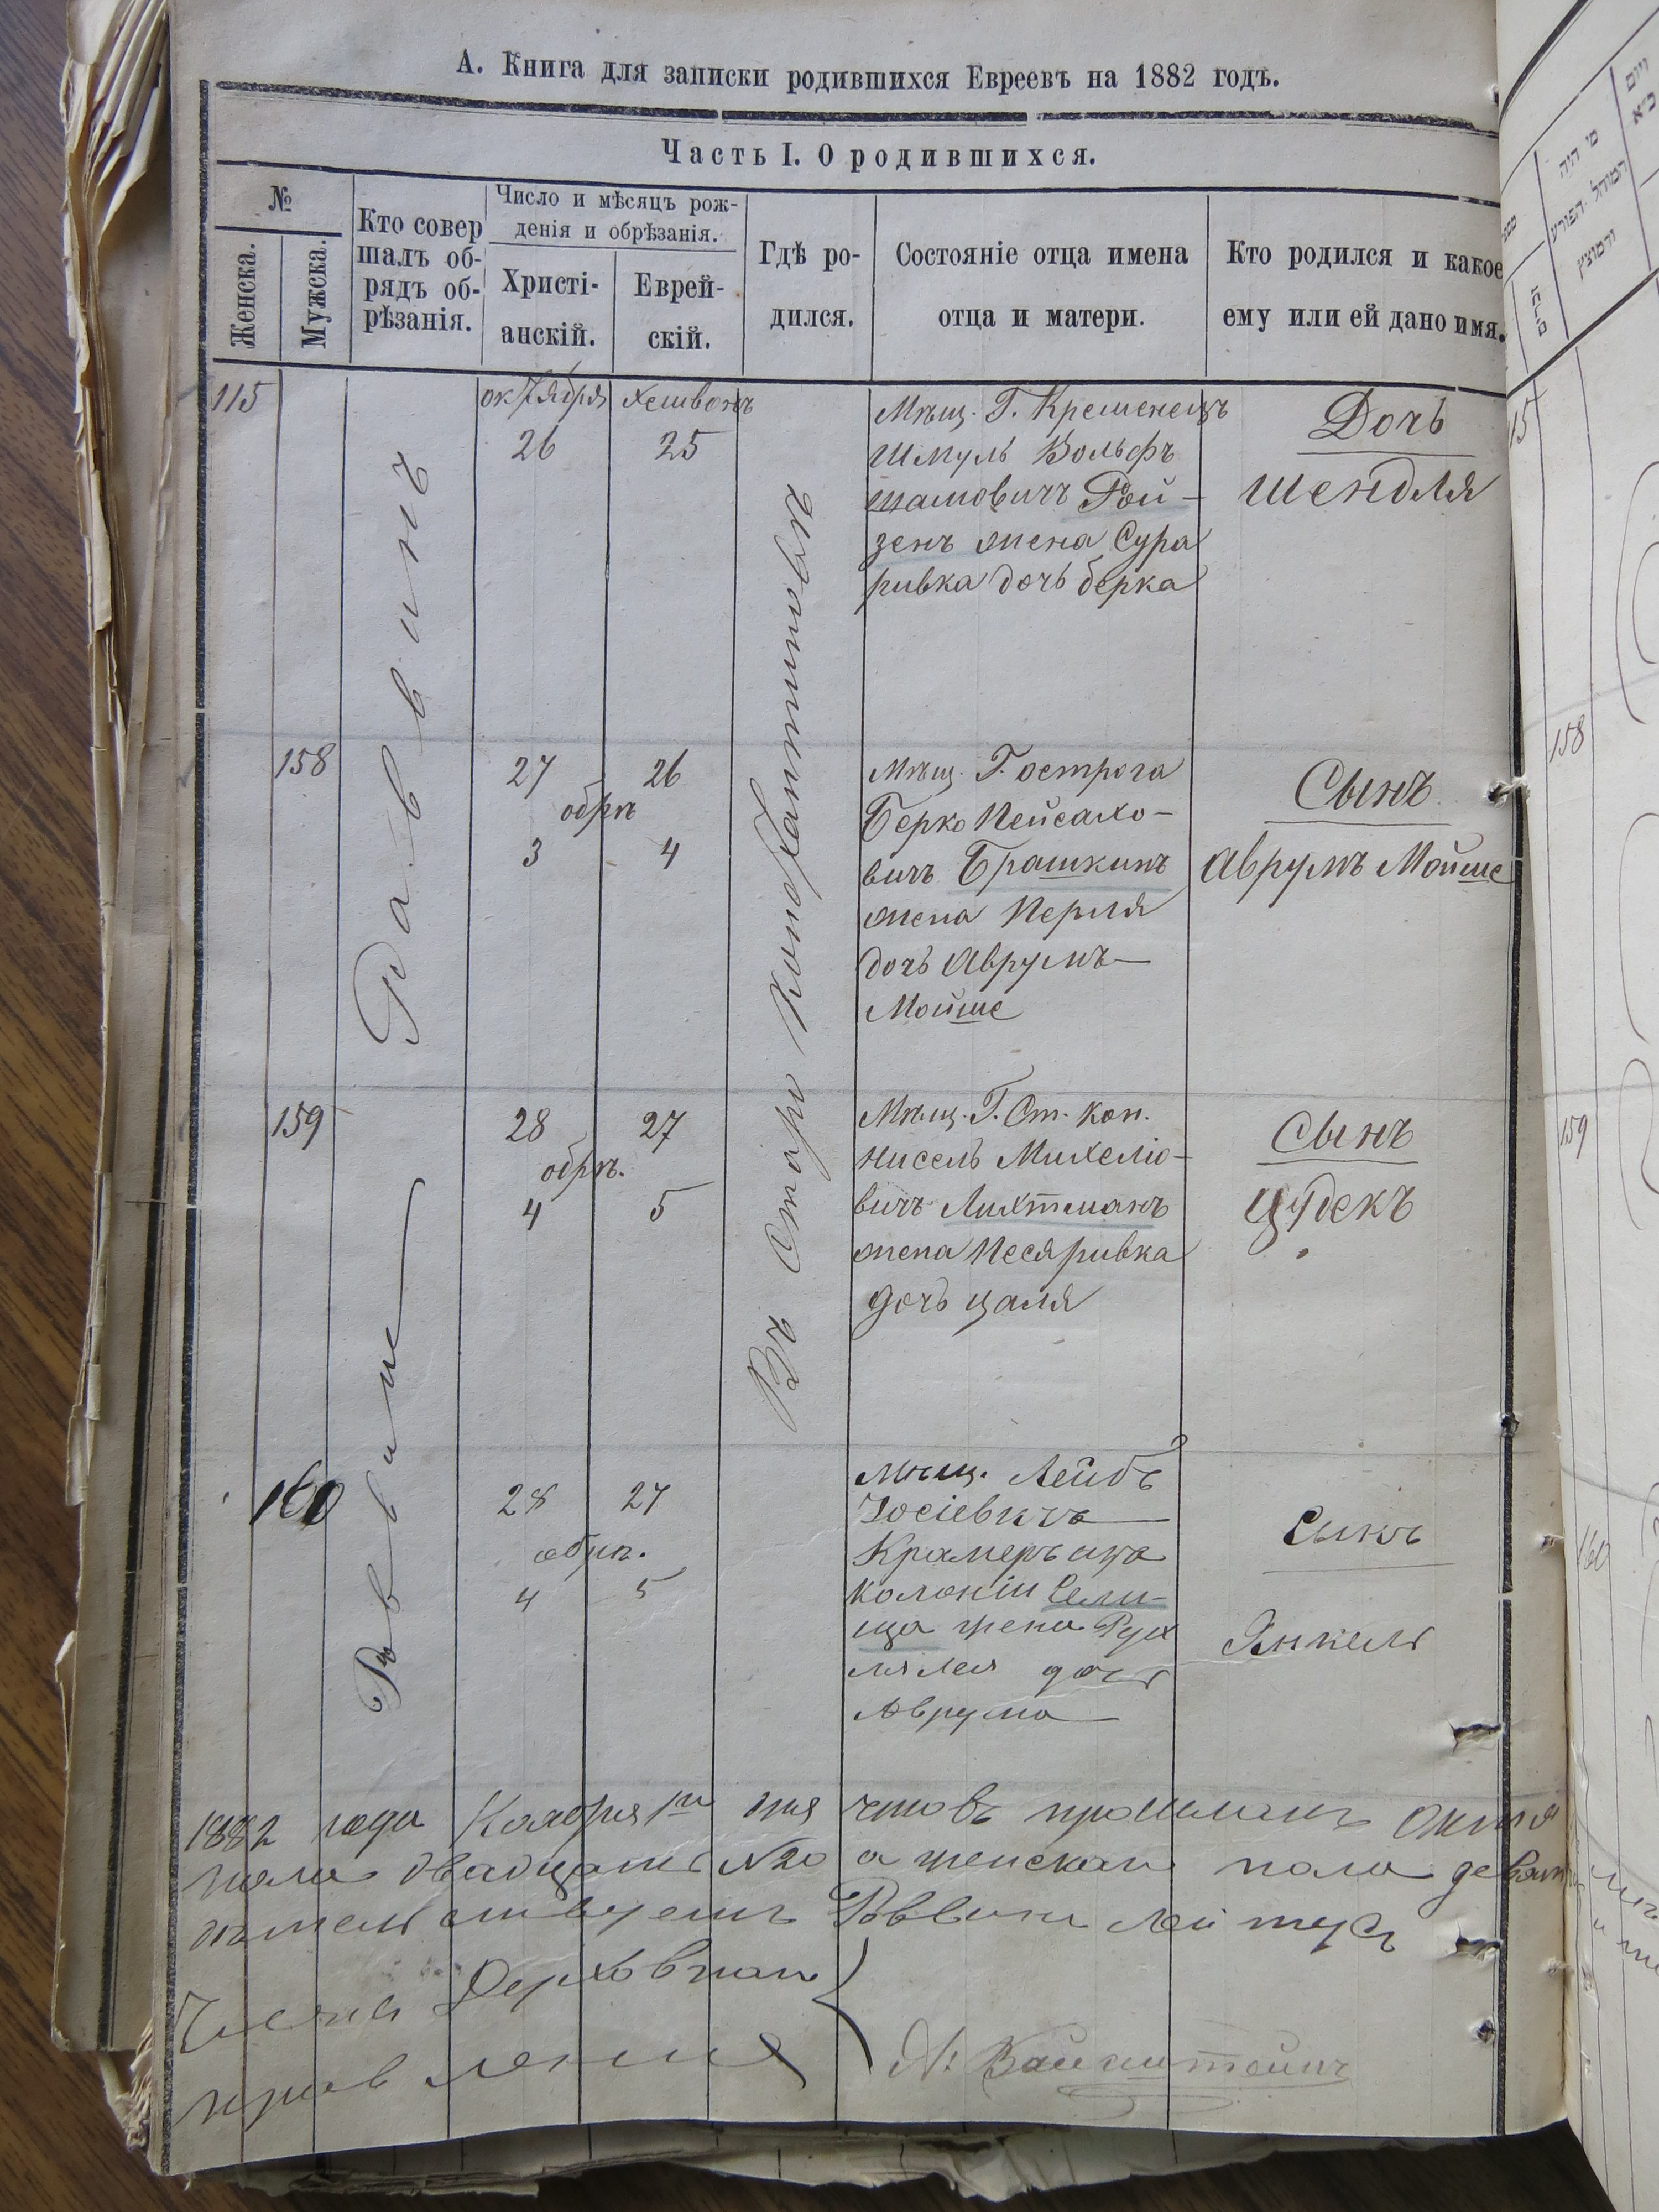 А. Книга для записки родившихся Евреевъ на 1882 годъ.
Часть I. О родившихся.
№
Женска.
Мужска.
Кто совер
шалъ об-
рядъ об-
рѣзанія.
Число и мѣсяцъ рож-
денія и обрѣзанія.
Христі-
анскій.
Еврей-
скій.
Гдѣ ро-
дился.
Состояніе отца имена
отца и матери.
Кто родился и какое
ему или ей дано имя.
Раввинъ
Раввинъ
Въ Старо Константиновѣ
115
октября
26
хешвонъ
25
Мѣщ. Г. Кременецъ
Шмуль Вольфъ
Рой-
зенъ жена Сура
ривка дочь берка
Дочь
шендля
158
27
26
обрѣ
3
4
Мѣщ. Г. острога
Берко Пейсахо-
вичъ Брашкинъ
жена Перля
дочь Аврумъ-
Мойше
Сынъ
Аврумъ Мойше
159
28
27
обрѣ.
4
5
Мѣщ. Г. Ст. Кон.
Нисель Михеліо-
вичъ Лихтманъ
жена Песя ривка
дочь цаля
Сынъ
Цудекъ
160
28
27
обрѣ.
4
5
мѣщ. Лейбъ
Іосіевичъ
Крамеръ изъ
колоніи Сели-
ща жена Рух
ля лея дочь
Аврума
Сынъ
Янкель
1882 года Ноября 1го дня что въ
пола двадцать №20 а женскаго пола девят
Раввинъ
Члены
правленія
15
158
159
160